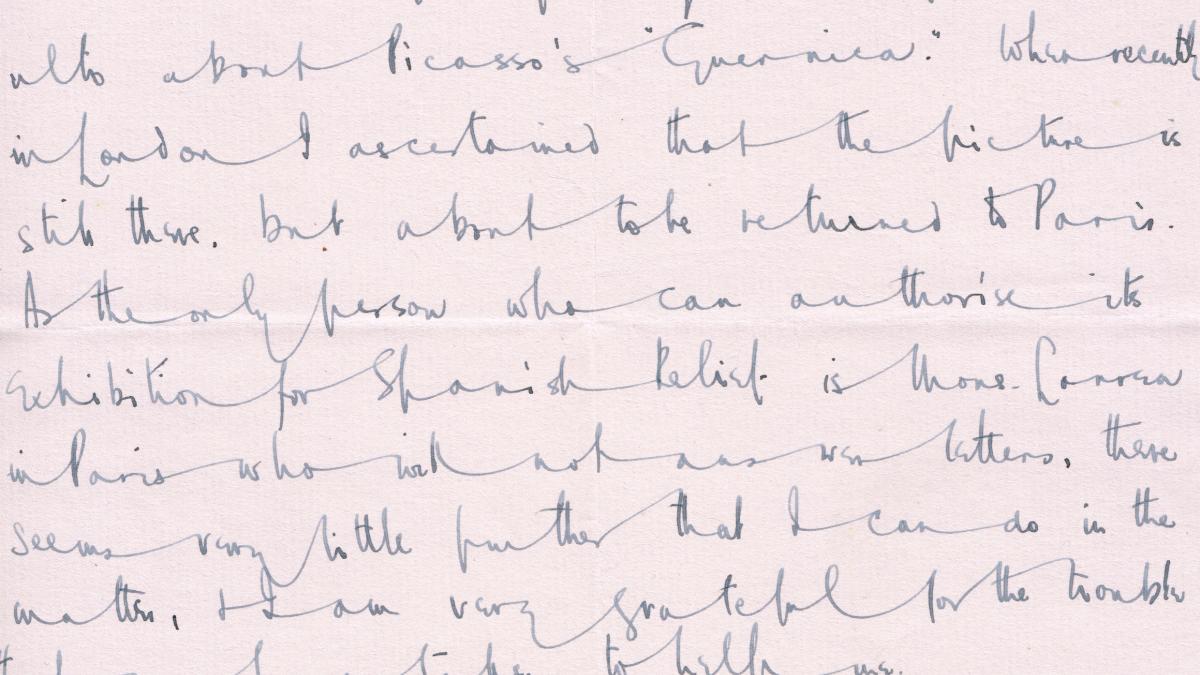 about Picasso's "Guernica". When recently
in London I ascertained that the picture is
still there. but about to be returned to Paris.
As the only person who can authorise its
Exhibition for Spanish Relief is Mons. Larrea
in Paris who will not answer letters, there
seems very little further that I can do in the
matter, & I am very grateful for the trouble
to help me.